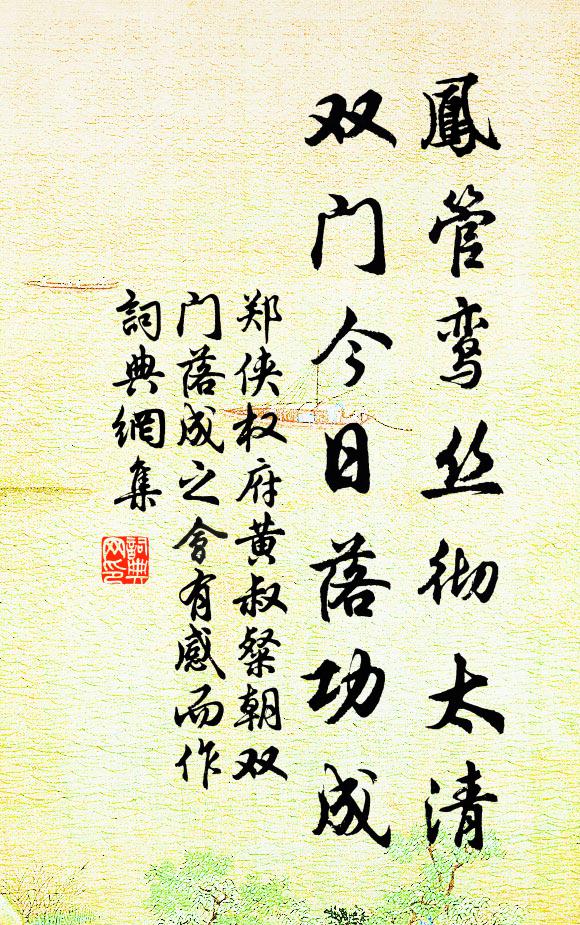 鳳管鸾丝彻太清
双门今日落功成
郑侠权府黄叔粲朝双
门落成之會有感而作
詞典網集
詞典
网印